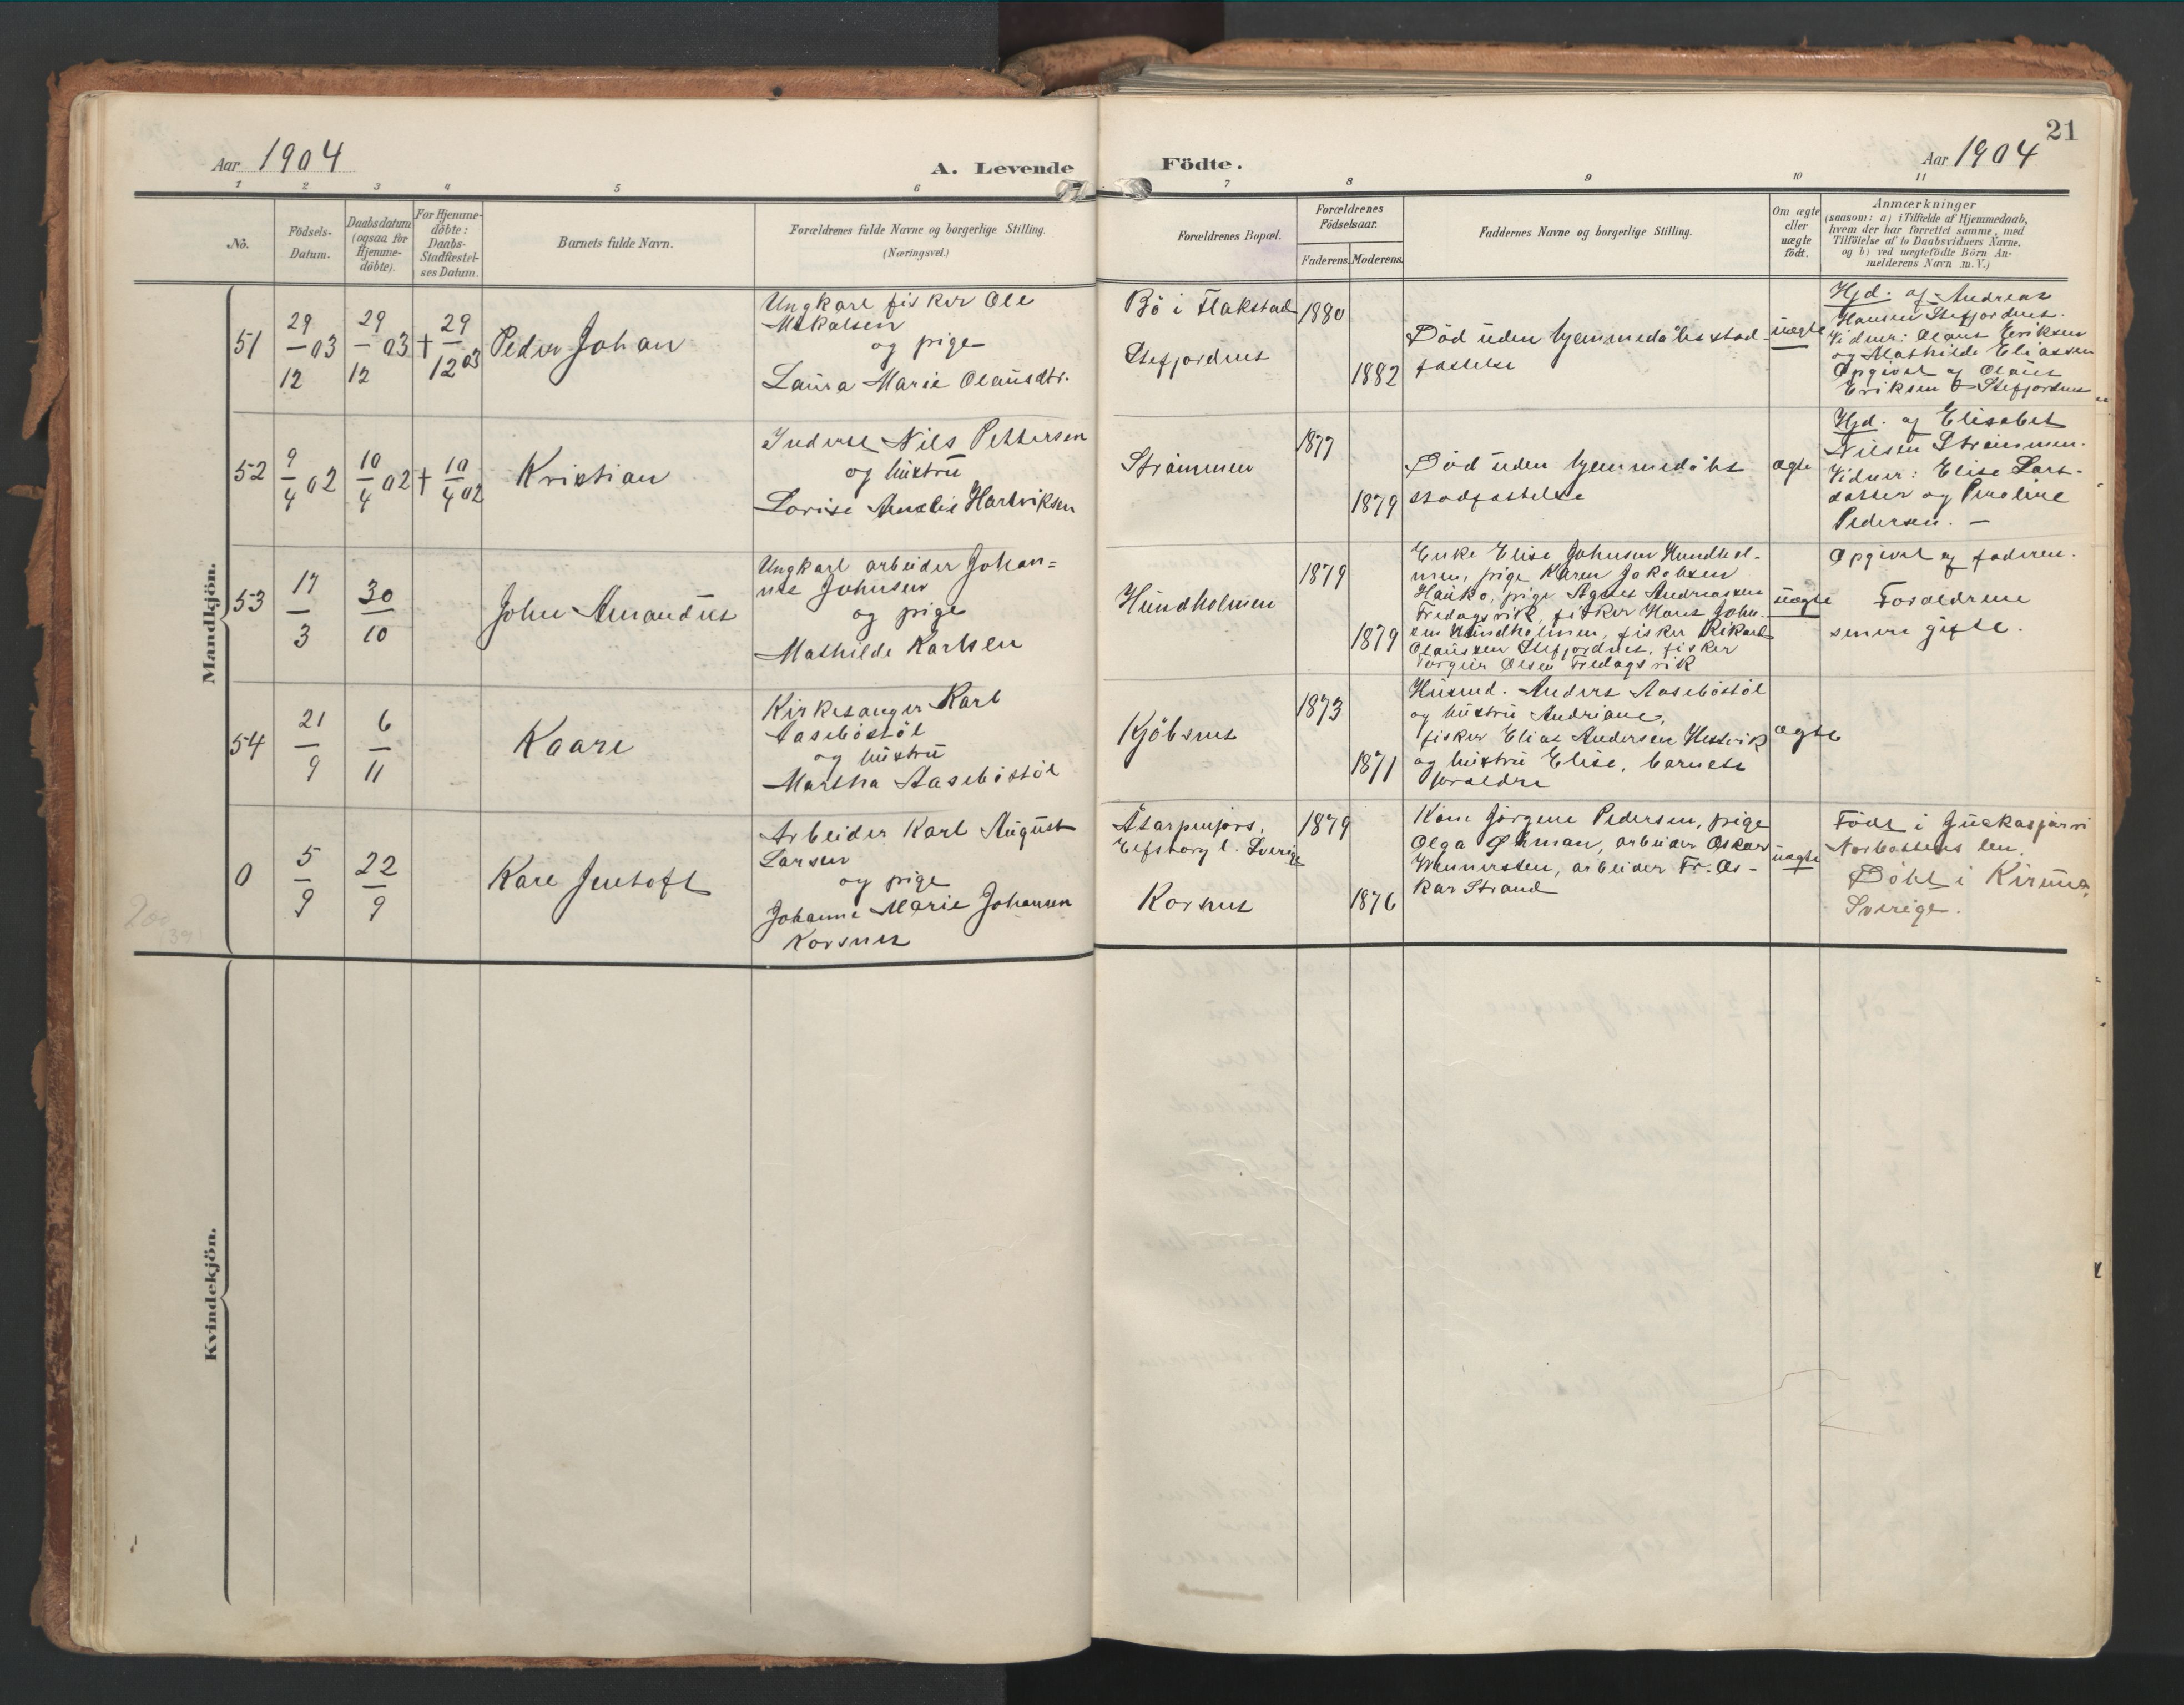 21
Aar 1904
A. Levende Födte.
Aar 1904
1 2 3 4 5 6 7 8 9 10 11
No.
Födsels-
Datum.
Daabsdatum
(ogsaa for
Hjemme-
döbte).
For Hjemme-
döbte:
Daabs-
Stadfæstel-
ses Datum.
Barnets fulde Navn.
Forældrenes fulde Navne og borgerlige Stilling.
(Næringsvei.)
Forældrenes Bopæl.
Forældrenes
Födselsaar.
Faderens. Moderens.
Faddernes Navne og borgerlige Stilling.
Om ægte
eller
uægte
födt.
Anmærkninger
(saasom: a) i Tilfælde af Hjemmedaab,
hvem der har forrettet samme, med
Tilföielse af to Daabsvidners Navne.
og b) ved uægtefödte Börn An-
melderens Navn m. V.)
Mandkjön.
51
29/12 03
29/12 03
+ 29/12 03
Peder Johan
Ungkarl fisker Ole
Mikalsen
og pige
Laura Marie Olausdtr.
Bö i Flakstad
Stefjordnes
1880
1882
Död uden hjemmedåbsstad-
fæstelse
uægte
Hjd. af Andreas
Hansen Stefjordnes.
Vidner: Olaus Eriksen
og Mathilde Eliassen
Opgivet af Olaus
Eriksen Stefjordnes
52
9/4 02
10/4 02
+ 10/4 02
Kristian
Inderst Nils Pettersen
og hustru
Lovise Amalie Hartviksen
Strömmen
1877
1879
Död uden hjemmedåbs
stadfæstelse
ægte
Hjd. af Elisabet
Nilsen Strömmen.
Vidner: Elise Lars-
datter og Peroline
Pedersen. —
53
17/3
30/10
John Amandus
Ungkarl arbeider Johan=
nes Johnsen
og pige
Mathilde Karlsen
Hundholmen
1879
1879
Enke Elise Johnsen Hundhol-
men, pige Karen Jakobsen
Haukö, pige Agnes Andreassen
Fredagsvik, fisker Hans John-
sen Hundholmen, fisker Rikard
Olaussen Stefjordnes, fisker
Torgeir Olsen Fredagsvik
uægte
Opgivet af faderen.
Forældrene
senere gifte.
54
21/9
6/11
Kaare
Kirkesanger Karl
Aaseböstöl
og hustru
Martha Aaseböstöl
Kjöbsnes
1873
1871
Husmd. Anders Aaseböstöl
og hustru Andriane,
fisker Elias Andersen Hestvik
og hustru Elise, barnets
foreldre
ægte
0
5/9
22/9
Kare Jentoft
Arbeider Karl August
Larsen
og pige
Johanne Marie Johansen
Korsnes
Elfsborg l. Sverige
Korsnes
1879
1876
Kone Jörgine Pedersen, pige
Olga Öhman, arbeider Oskar
Wennersten, arbeider Fr. Os-
kar Strand
uægte
Födt i Juckasjärvi
Norbottens len.
Döbt i Kiruna,
Sverige.
Kvindekjön.